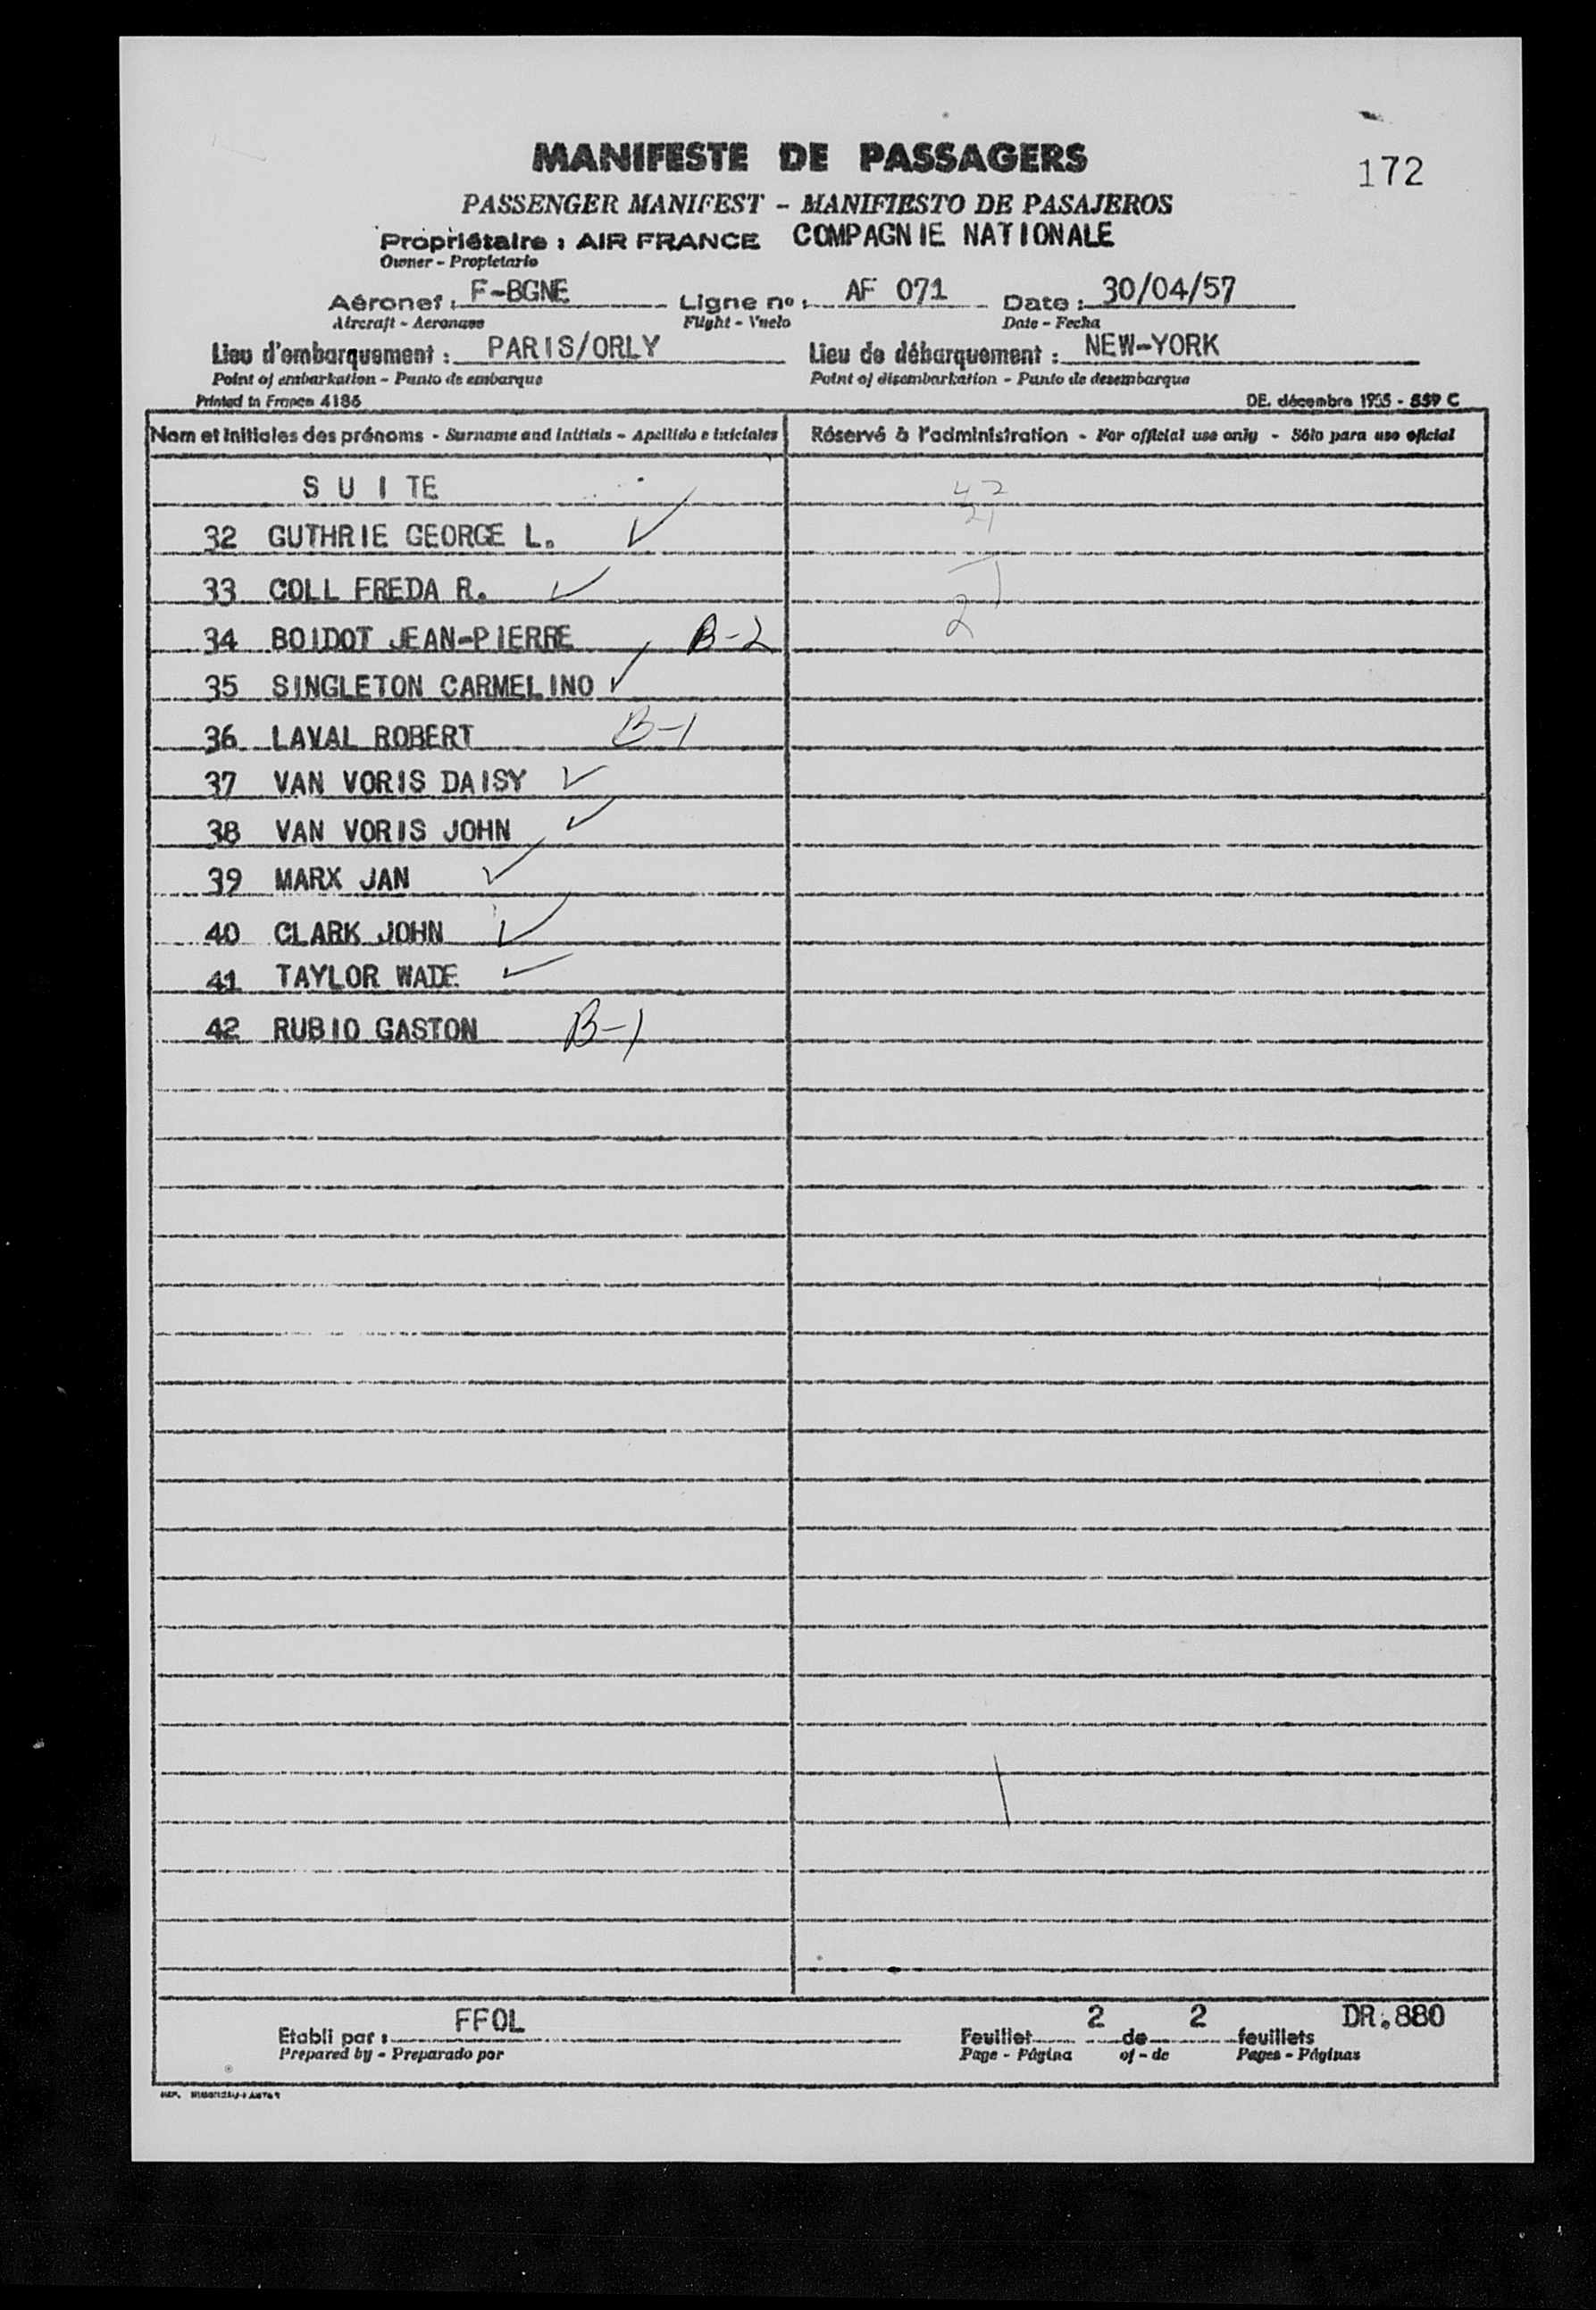 172
MANIFESTE DE PASSAGERS
PASSENGER MANIFEST - MANIFIESTO DE PASAJEROS
Propriétaire : AIR FRANCE COMPAGNIE NATIONALE
Owner - Propietario
Aéronef : F-BGNE Ligne nº : AF 071 Date : 30/04/57
Aircraft - Aeronave Flight - Vuelo Date - Fecha
Lieu d'embarquement : PARIS/ORLY Lieu de débarquement : NEW-YORK
Point of embarkation - Punto de embarque Point of disembarkation - Punto de desembarque
Printed in France 4186 DE. décembre 1955 - 559 C
Nom et initiales des prénoms - Surname and initials - Apellido e iniciales Réservé à l'administration - For official use only - Sólo para uso oficial
S U I TE
42
21
32 GUTHRIE GEORGE L. ✓
33 COLL FREDA R. ✓
34 BOIDOT JEAN-PIERRE B-2 2
35 SINGLETON CARMELINO ✓
36 LAVAL ROBERT B-1
37 VAN VORIS DAISY ✓
38 VAN VORIS JOHN ✓
39 MARX JAN ✓
40 CLARK JOHN ✓
41 TAYLOR WADE ✓
42 RUBIO GASTON B-1
Etabli par : FFOL Feuillet 2 de 2 feuillets DR.880
Prepared by - Preparado por Page - Página of - de Pages - Páginas